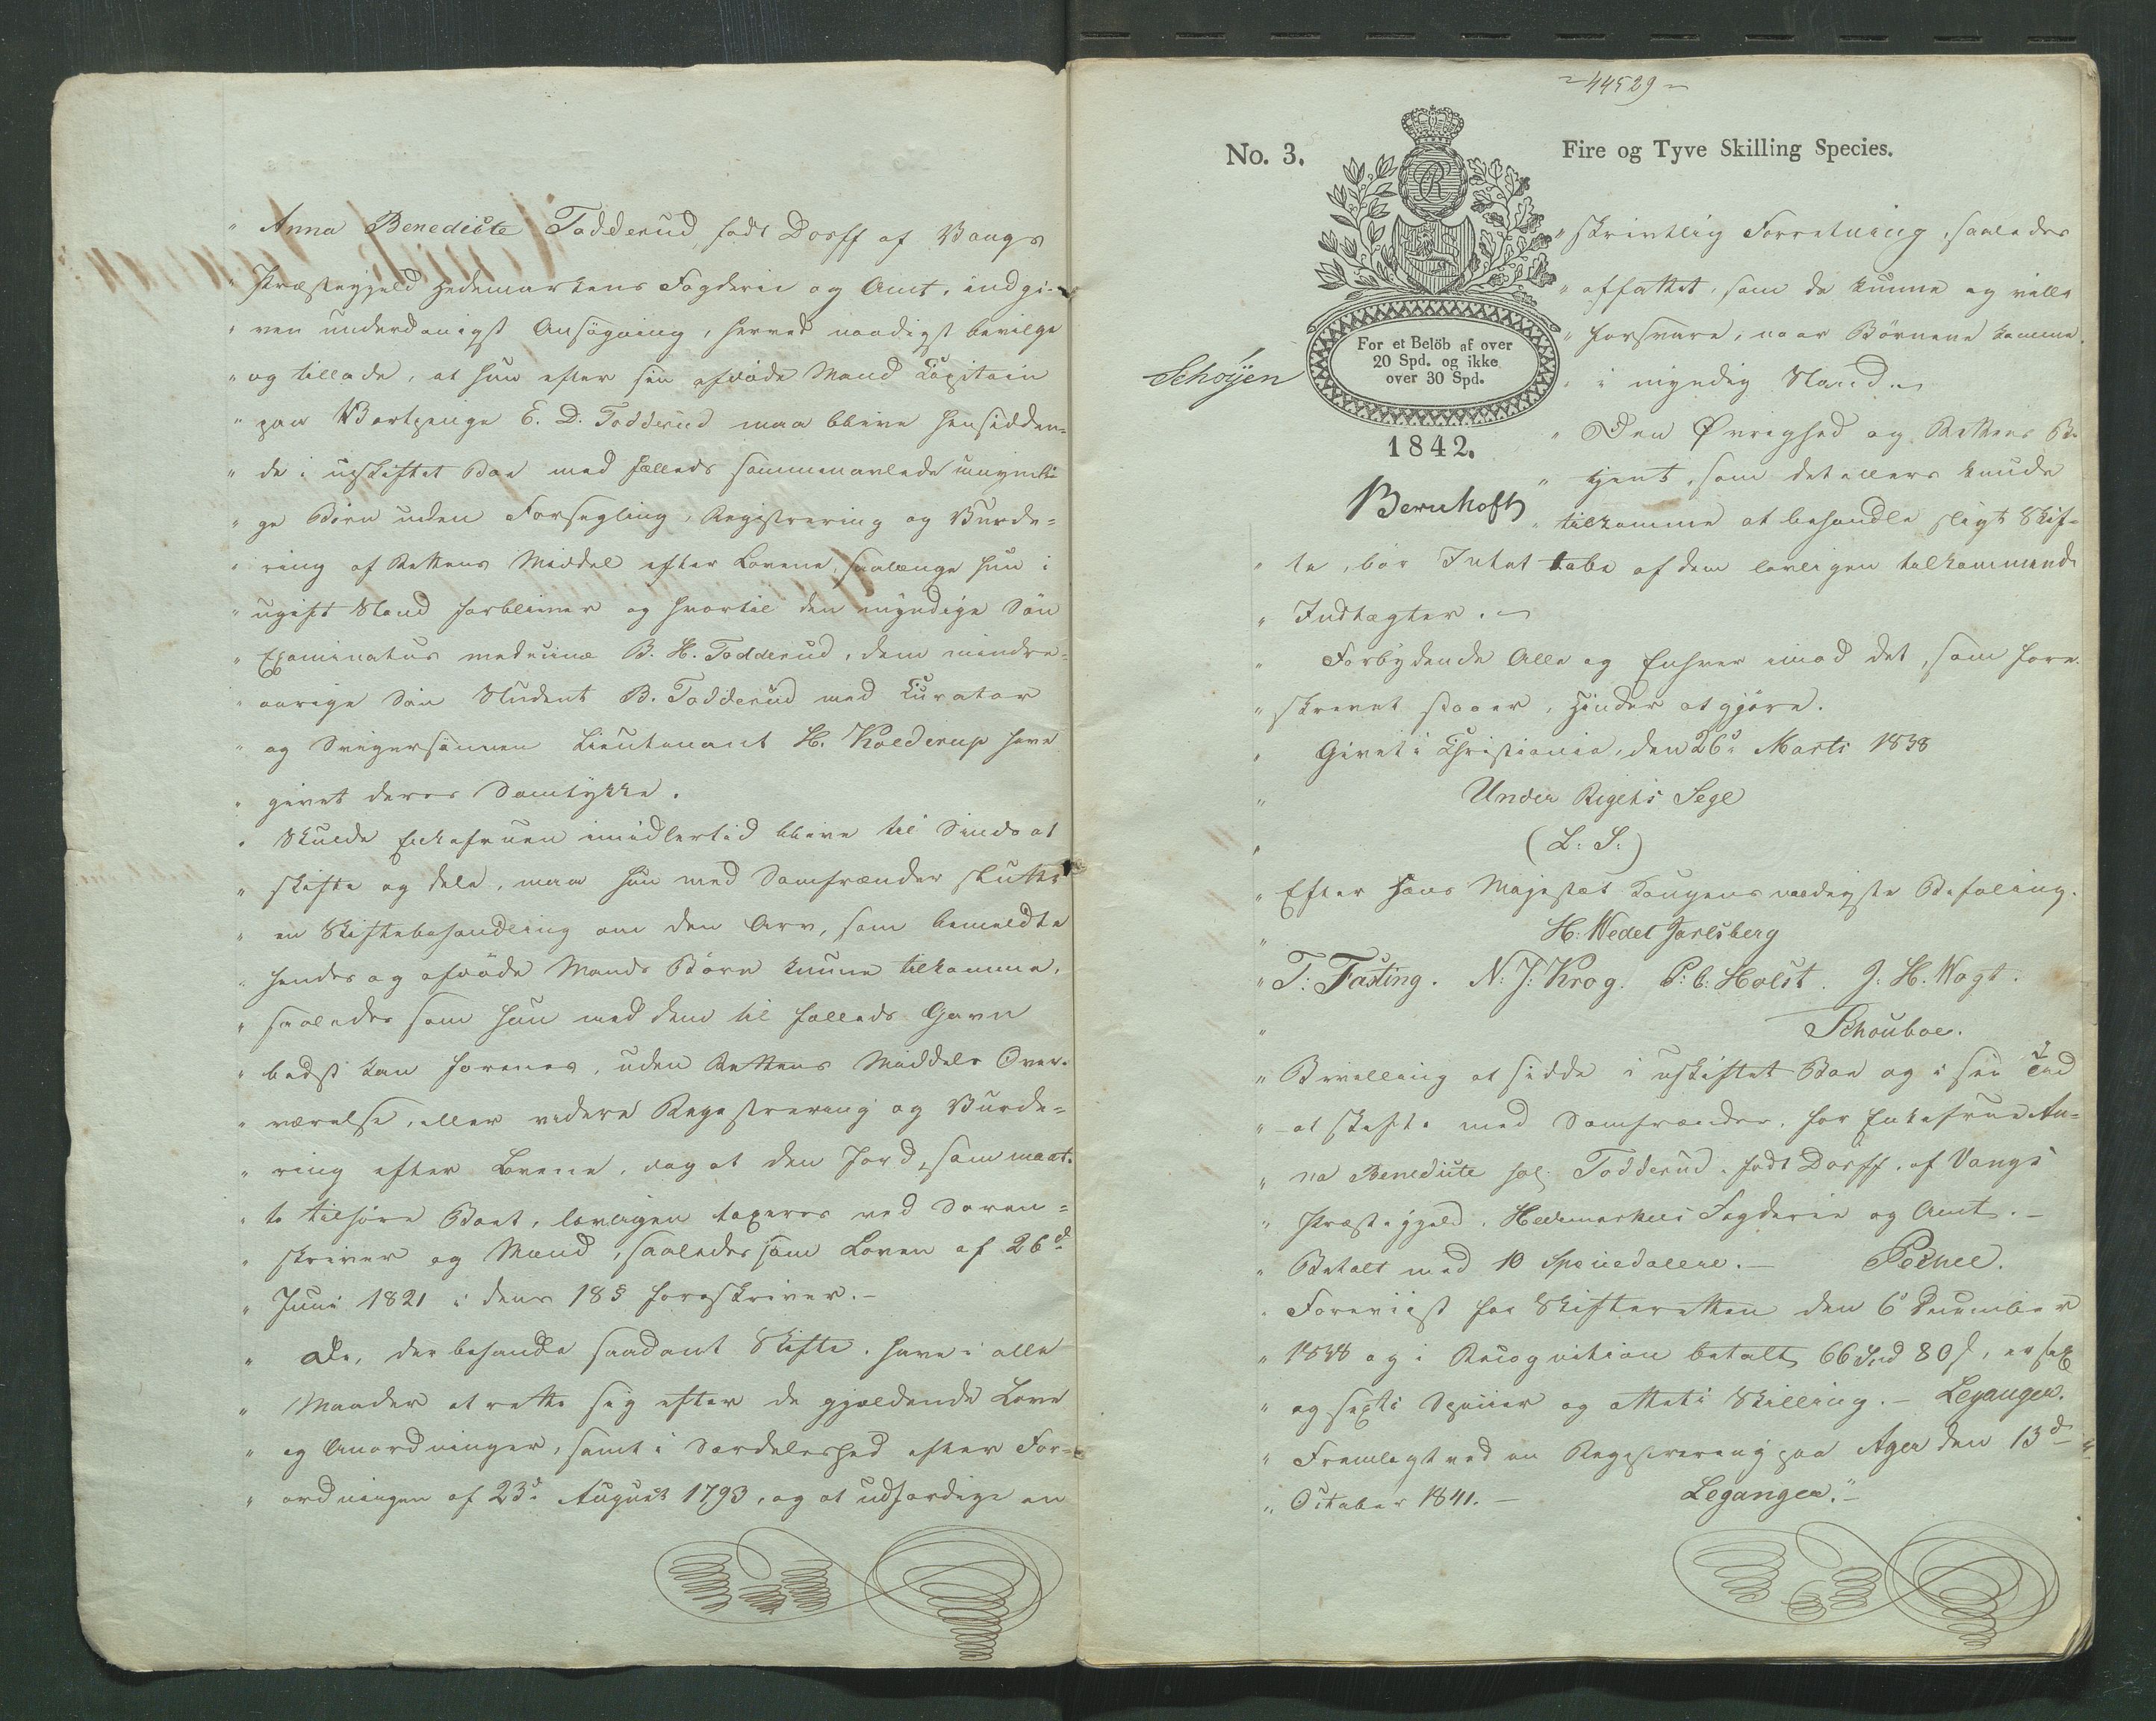 " Anna Benedicte Todderud, født Dorff af Vangs
" Præstegjeld Hedemarkens Fogderie og Amt, indgi-
" ven underdanigst Ansøgning, herved naadigst bevilge
" og tillade, at hun efter sin afdøde Mand Capitain
" paa Vartpenge E. D. Todderud maa blive hensidden-
" de i uskiftet Boe med fælleds sammenavlede umyndi-
" ge Børn uden Forsegling, Registrering og Vurde-
" ring af Rettens Middel efter Lovene, saalænge hun i
" ugift Stand forbliver og hvortil den myndige Søn
" Examinatus medicinæ B. H. Todderud, dem mindre-
" aarige Søn Student B. Todderud med Curator
" og Svigersønnen Lieutenant H. Kolderup have
" givet deres Samtykke.
" Skulde Enkefruen imidlertid blive til Sinds at
" skifte og dele, maa hun med Samfrænder slutte
" en Skiftebehandling om den Arv, som bemeldte
" hendes og afdøde Mands Børn kunne tilkomme,
" saaledes som hun med dem til fælleds Gavn
" bedst kan forenes, uden Rettens Middels Over-
" værelse, eller videre Registrering og Vurde-
" ring efter Lovene, dog at den Jord, som maat-
" te tilhøre Boet, lovligen taxeres ved Soren-
" skriver og Mænd, saaledes som Loven af 26d
" Juni 1821 i dens 18 § foreskriver.-
" De, der behandle saadant Skifte, have i alle
" Maader at rette sig efter de gjældende Love
" og Anordninger, samt i Særdeleshed efter For-
" ordningen af 23d August 1793, og at udfærdige en
44529
No. 3.
Fire og Tyve Skilling Species.
For et Belöb af over
20 Spd. og ikke
over 30 Spd.
1842.
Schøyen
Bernhoft
" skrivtlig Forretning, saaledes
" affattet, som de kunne og ville
" forsvare, naar Børnene komme
" i myndig Stand.
" Den Øvrighed og Rettens Be
" tjent, som det ellers kunde
" tilkomme at behandle sligt Skif-
" te, bør Intet tabe af dem lovligen tilkommende
" Indtægter.
" Forbydende Alle og Enhver imod det, som fore-
" skrevet staaer, Hinder at gjøre.
" Givet i Christiania, den 26d Marts 1838
" Under Rigets Segl
" (L: S:)
" Efter Hans Majestæt Kongens naadigste Befaling.
" H: Wedel Jarlsberg
" T: Fasting. N: J: Krog. P: C: Holst. J. H. Vogt.
" Schouboe.
" Bevilling at sidde i uskiftet Boe og i sin Tid
" at skifte med Samfrænder, for Enkefrue An-
" na Benedicte sal. Todderud, født Dorff, af Vangs
" Præstegjeld, Hedemarkens Fogderie og Amt.-
" Betalt med 10 Speciedalere.-
" Foreviist for Skifteretten den 6 December
" 1838 og i Recognition betalt 66 Spd 80 s, er sex
" og sexti Specier og otteti Skilling.- Leganger.
" Fremlagt ved en Registrering paa Ager den 13d
" October 1841.- Leganger."-